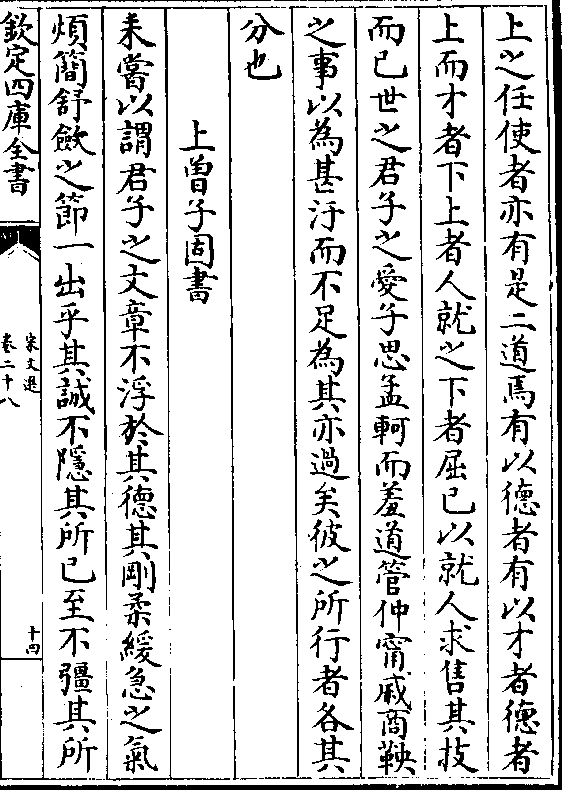 上之任使者亦有是二道焉有以德者有以才者德者
上而才者下上者人就之下者屈已以就人求售其技
而已世之君子之愛子思孟軻而羞道管仲甯戚商鞅
之事以為甚汙而不足為其亦過矣彼之所行者各其
分也
上曾子固書
耒嘗以謂君子之文章不浮於其德其剛柔緩急之氣
煩簡舒斂之節一出乎其誠不隱其所已至不彊其所
欽定四庫全書
宋文選
卷二十八
十四